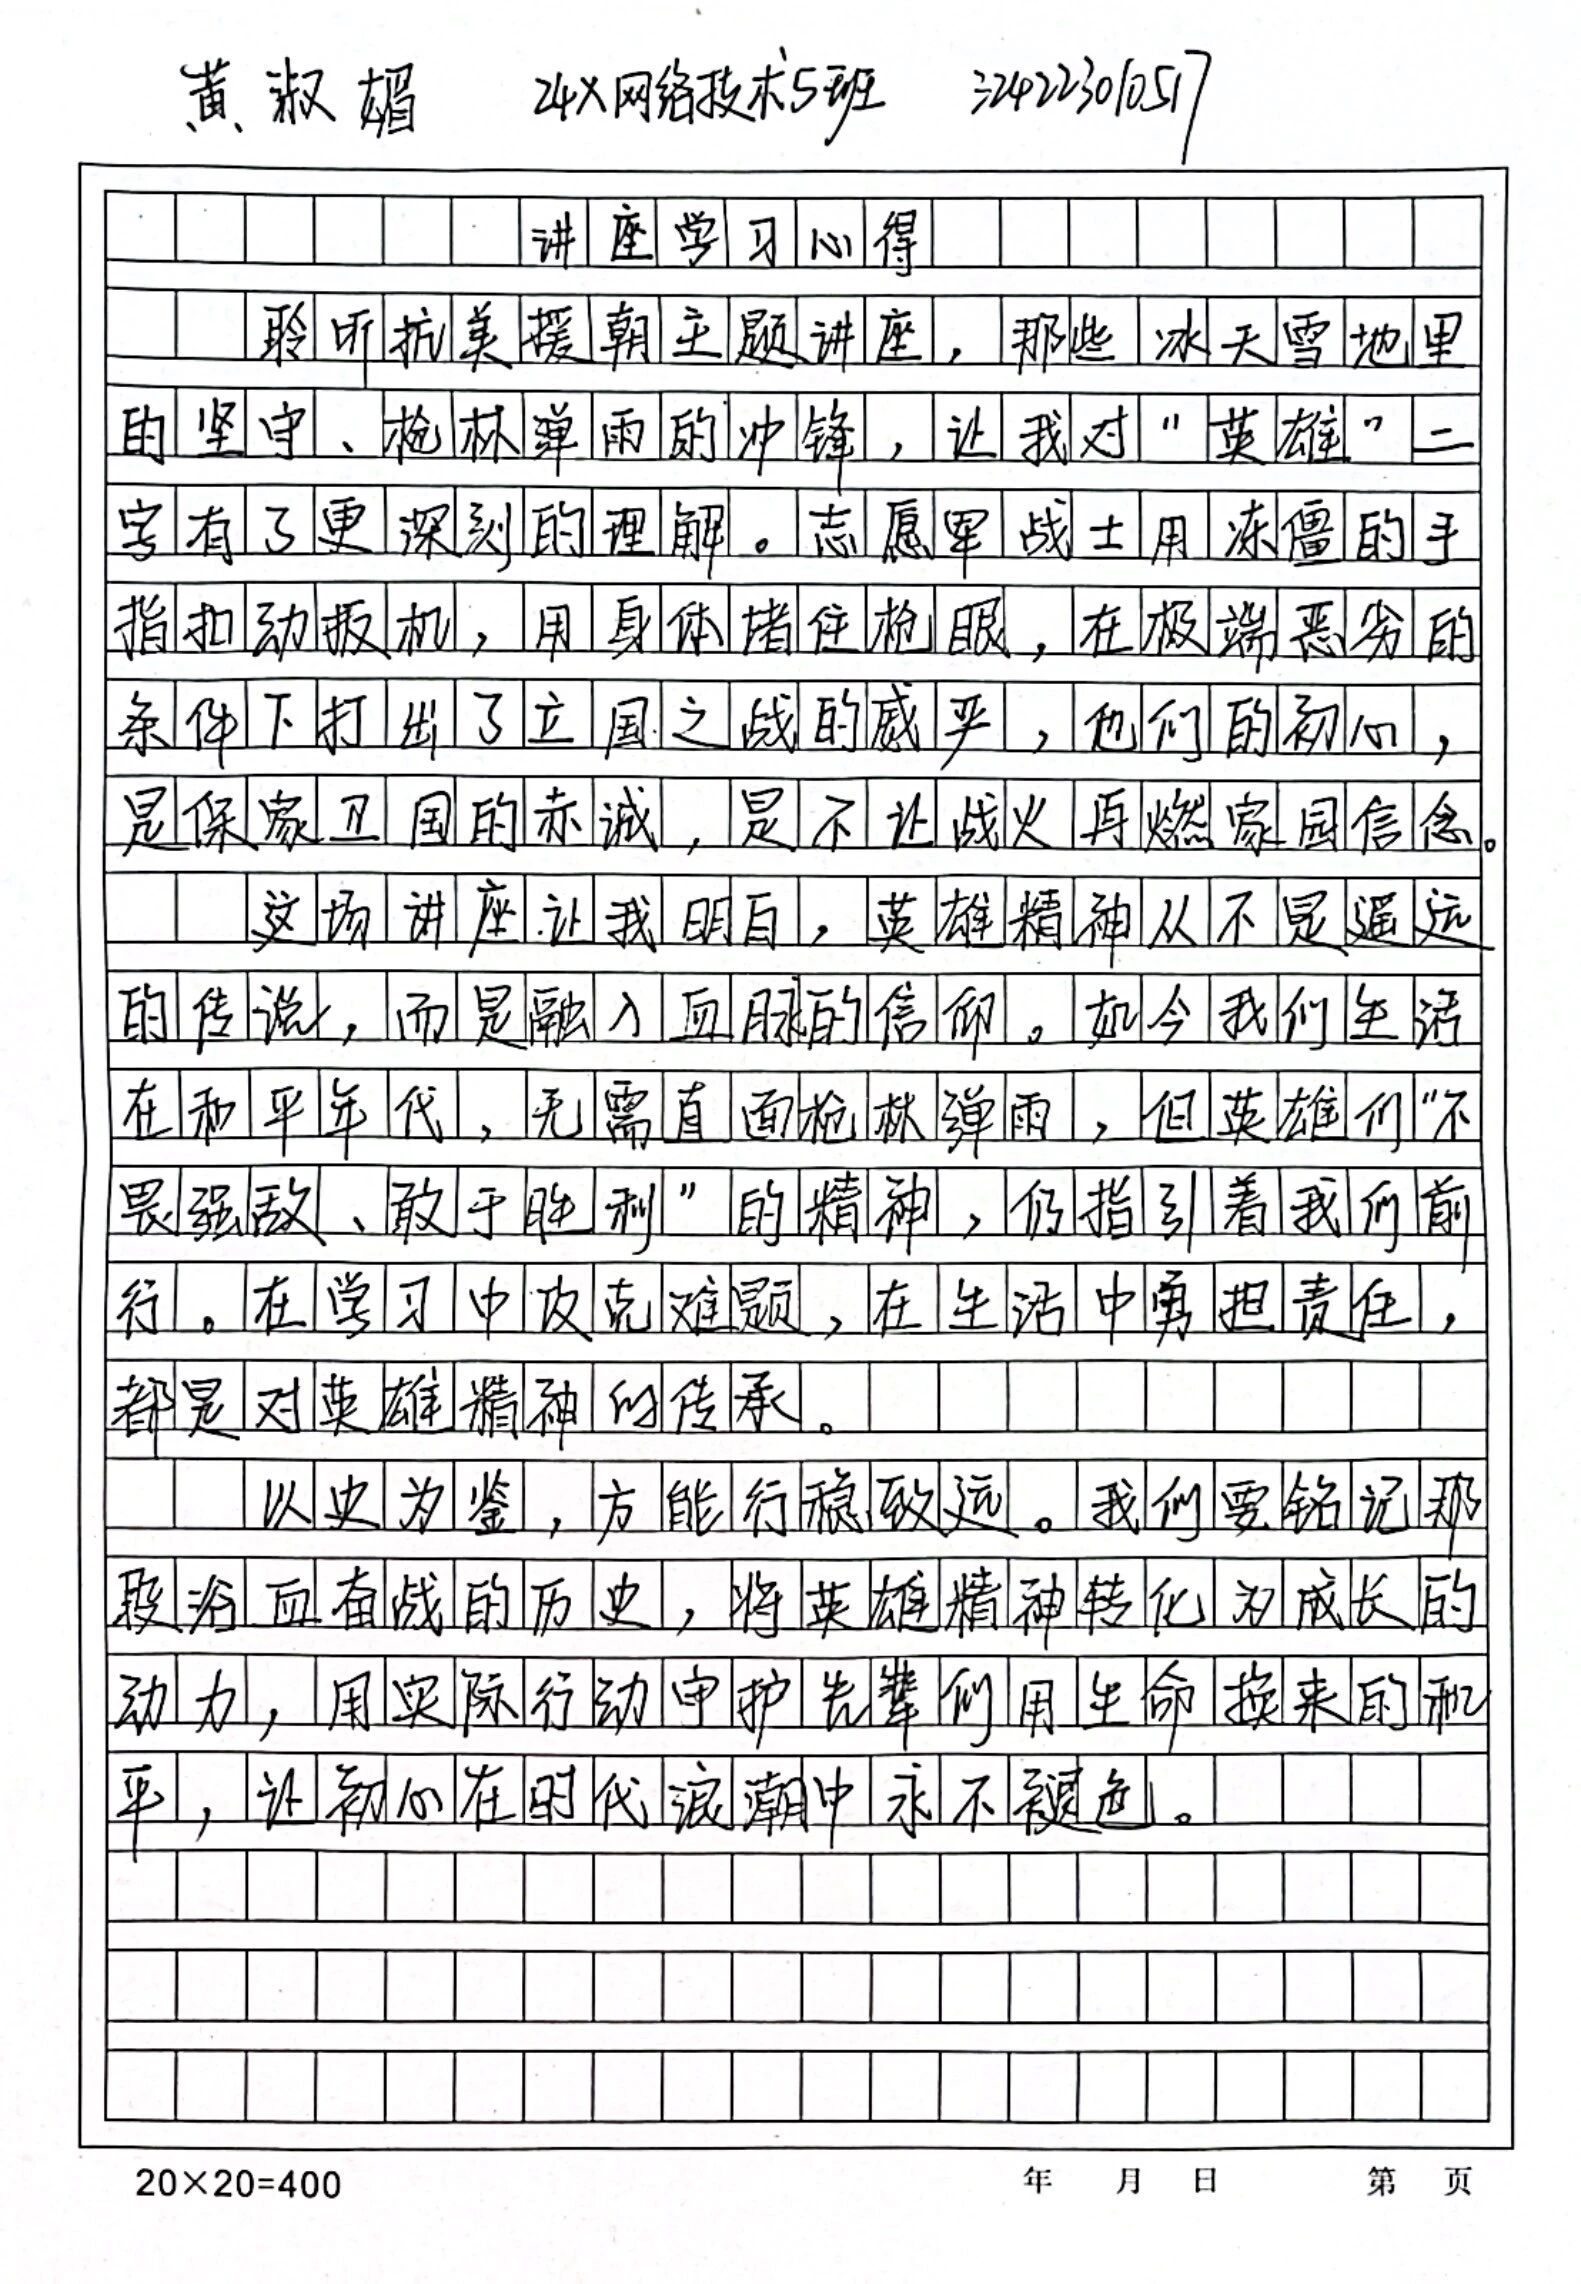 黄淑媚 24X网络技术5班 324223010517
讲座学习心得
聆听抗美援朝主题讲座，那些冰天雪地里
的坚守、枪林弹雨的冲锋，让我对“英雄”二
字有了更深刻的理解。志愿军战士用冻僵的手
指扣动扳机，用身体堵住枪眼，在极端恶劣的
条件下打出了立国之战的威严，他们的初心，
是保家卫国的赤诚，是不让战火再燃家园信念。
这场讲座让我明白，英雄精神从不是遥远
的传说，而是融入血脉的信仰。如今我们生活
在和平年代，无需直面枪林弹雨，但英雄们“不
畏强敌、敢于胜利”的精神，仍指引着我们前
行。在学习中攻克难题，在生活中勇担责任，
都是对英雄精神的传承。
以史为鉴，方能行稳致远。我们要铭记那
段浴血奋战的历史，将英雄精神转化为成长的
动力，用实际行动守护先辈们用生命换来的和
平，让初心在时代浪潮中永不褪色。
20×20=400 年 月 日 第 页